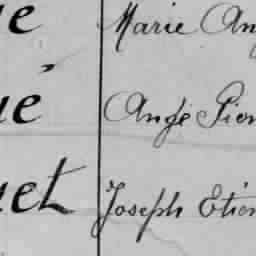 ue Marie Ang
ué Ange Pier
uet Joseph Etien